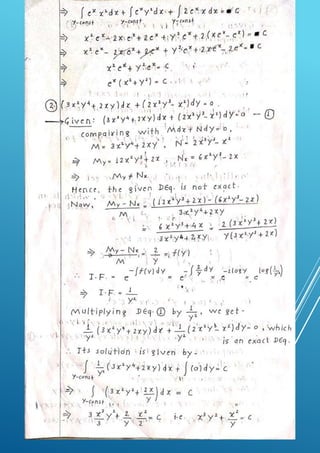 ⇒ ∫ eˣ x² dx + ∫ eˣ y² dx + ∫ 2eˣ x dx = C
y-const y-const y-const
⇒ x² eˣ - 2x eˣ + 2eˣ + y² eˣ + 2(xeˣ - eˣ) = C
⇒ x² eˣ - 2xeˣ + 2eˣ + y² eˣ + 2xeˣ - 2eˣ = C
⇒ x² eˣ + y² eˣ = C
⇒ eˣ (x² + y²) = C
② (3x²y⁴ + 2xy) dx + (2x³y³ - x²) dy = 0
→ Given: (3x²y⁴ + 2xy) dx + (2x³y³ - x²) dy = 0 — ①
compairing with Mdx + Ndy = 0,
M = 3x²y⁴ + 2xy, N = 2x³y³ - x²
⇒ My = 12x²y³ + 2x, Nx = 6x²y³ - 2x
⇒ My ≠ Nx
Hence, the given DEq. is not exact.
Now, My - Nx / M = (12x²y³ + 2x) - (6x²y³ - 2x) / 3x²y⁴ + 2xy
= 6x²y³ + 4x / 3x²y⁴ + 2xy = 2(3x²y³ + 2x) / y(3x²y³ + 2x)
⇒ My - Nx / M = 2/y = f(y)
∴ I.F. = e^(-∫f(y)dy) = e^(-∫2/y dy) = e^(-2logy) = e^(log(1/y²))
⇒ I.F. = 1/y²
Multiplying DEq. ① by 1/y², we get.
1/y² (3x²y⁴ + 2xy) dx + 1/y² (2x³y³ - x²) dy = 0, which
is an exact DEq.
∴ Its solution is given by.
∫ 1/y² (3x²y⁴ + 2xy) dx + ∫(0) dy = C
y-const
⇒ ∫ (3x²y² + 2x/y) dx = C
y-const
⇒ 3 x³/3 y² + 2/y x²/2 = C i.e. x³y² + x²/y = C